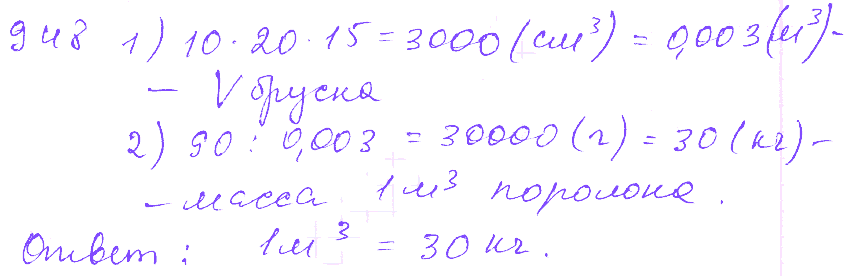 948 1) 10 · 20 · 15 = 3000 (см³) = 0,003 (м³) –
– V бруска
2) 90 : 0,003 = 30000 (г) = 30 (кг) –
– масса 1 м³ поролона.
Ответ: 1 м³ = 30 кг.